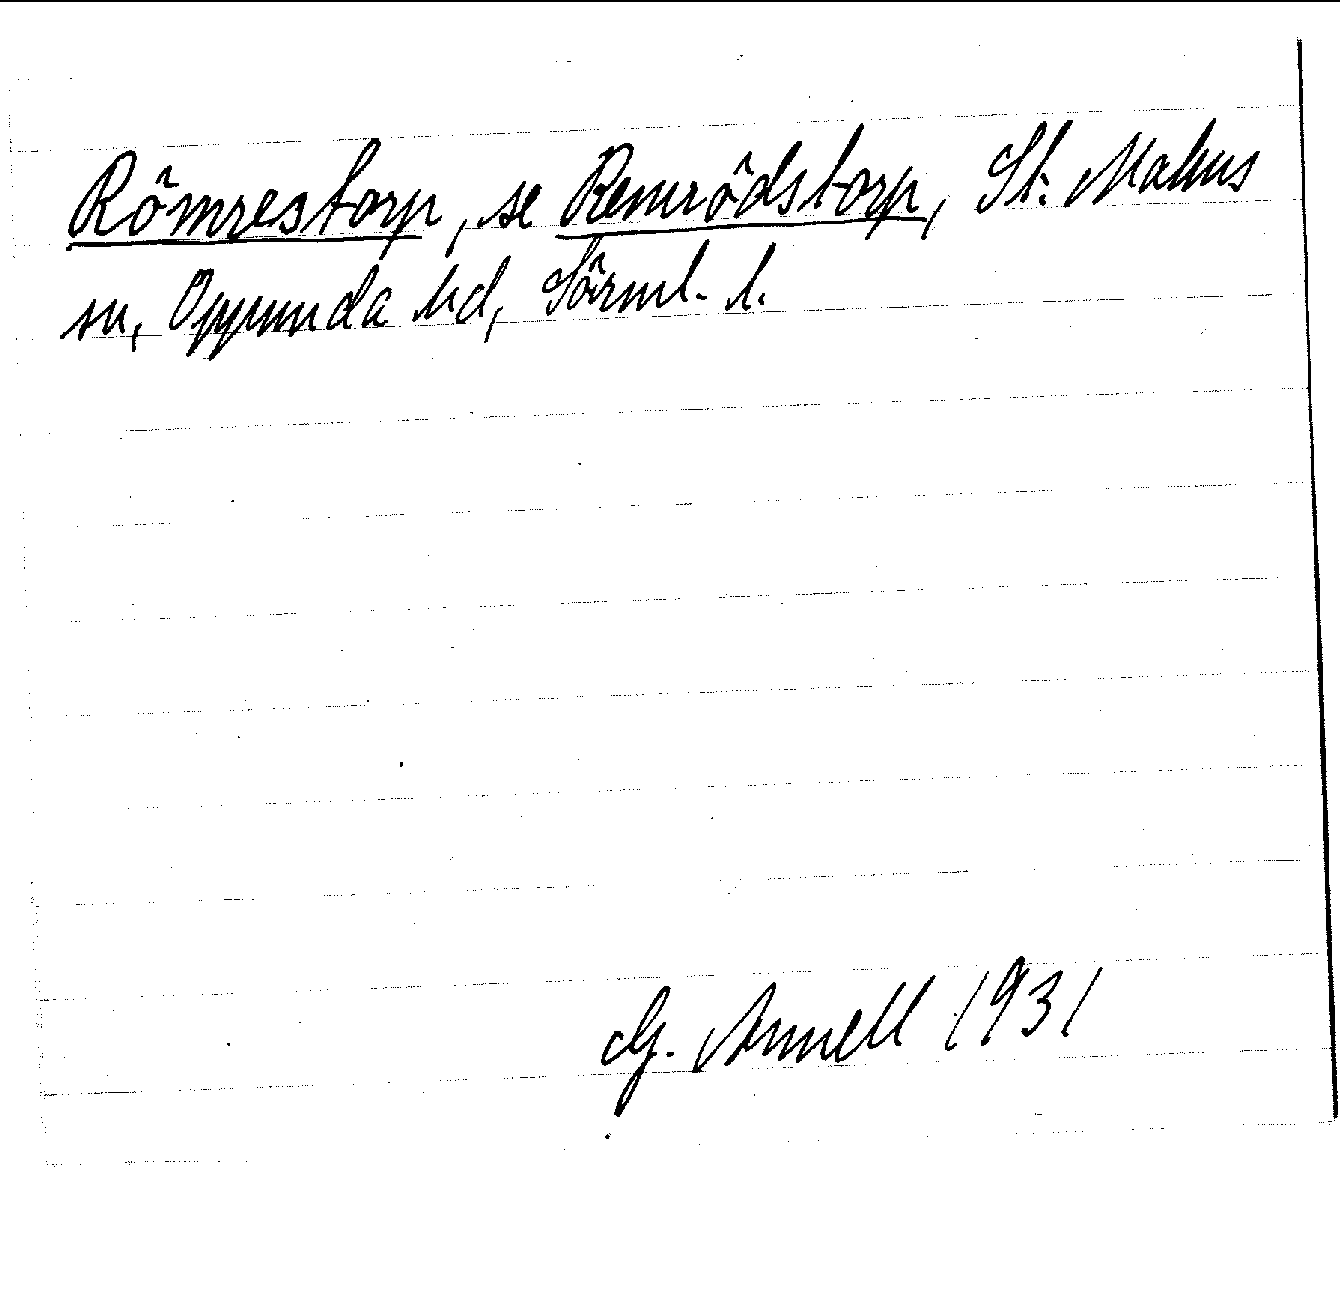 Römrestorp, se Remrödstorp, St. Malms
sn, Oppunda hd, Sörml. l.
G. Annell 1931